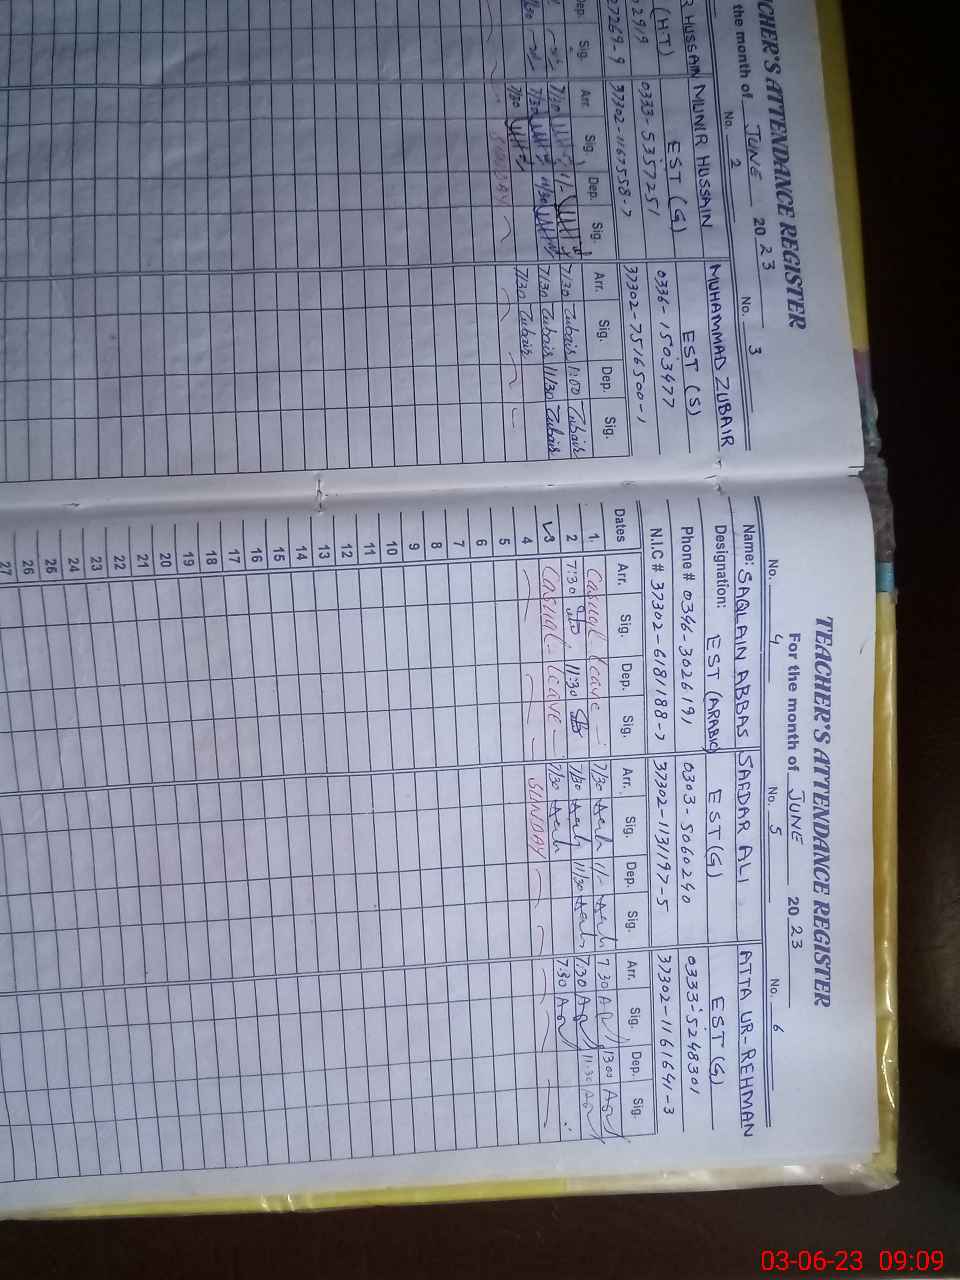 TEACHER'S ATTENDANCE REGISTER
the month of JUNE 2023
No. 2 No. 3
R HUSSAIN MUNIR HUSSAIN MUHAMMAD ZUBAIR
(H.T) EST (G) EST (S)
2919 0333-5357251 0336-1503477
27269-9 37302-1167558-7 37302-7516500-1
Dep. Sig. Arr. Sig. Dep. Sig. Arr. Sig. Dep. Sig.
7/30 11/- 7/30 Zubair 11:00 Zubair
7/30 11/30 7/30 Zubair 11/30 Zubair
7/30 7/30 Zubair
SUNDAY
TEACHER'S ATTENDANCE REGISTER
For the month of JUNE 2023
No. 4 No. 5 No. 6
Name: SAQLAIN ABBAS SAFDAR ALI ATTA UR-REHMAN
Designation: EST (ARABIC) EST (G) EST (G)
Phone # 0346-3026191 0303-5060240 0333-5248301
N.I.C # 37302-6181188-7 37302-1131197-5 37302-1161641-3
Dates Arr. Sig. Dep. Sig. Arr. Sig. Dep. Sig. Arr. Sig. Dep. Sig.
1. Casual leave 7/30 11/- 7.30 13 00
2 7:30 11:30 7/30 11/30 7.30 11:30
3 Casual leave 7/30 7.30
4 SUNDAY
5
6
7
8
9
10
11
12
13
14
15
16
17
18
19
20
21
22
23
24
25
26
27
03-06-23 09:09